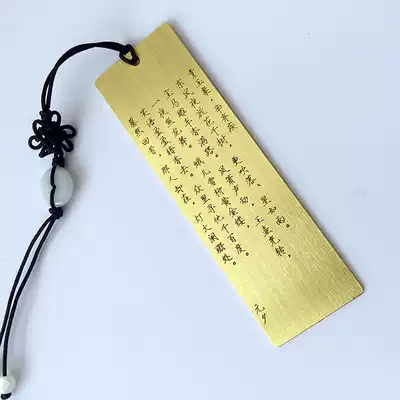 青玉案,辛弃疾
东风夜放花千树。更吹落,星如雨。
宝马雕车香满路。凤箫声动,玉壶光转,
一夜鱼龙舞。蛾儿雪柳黄金缕,
笑语盈盈暗香去。众里寻他千百度。
蓦然回首,那人却在,灯火阑珊处。
元夕